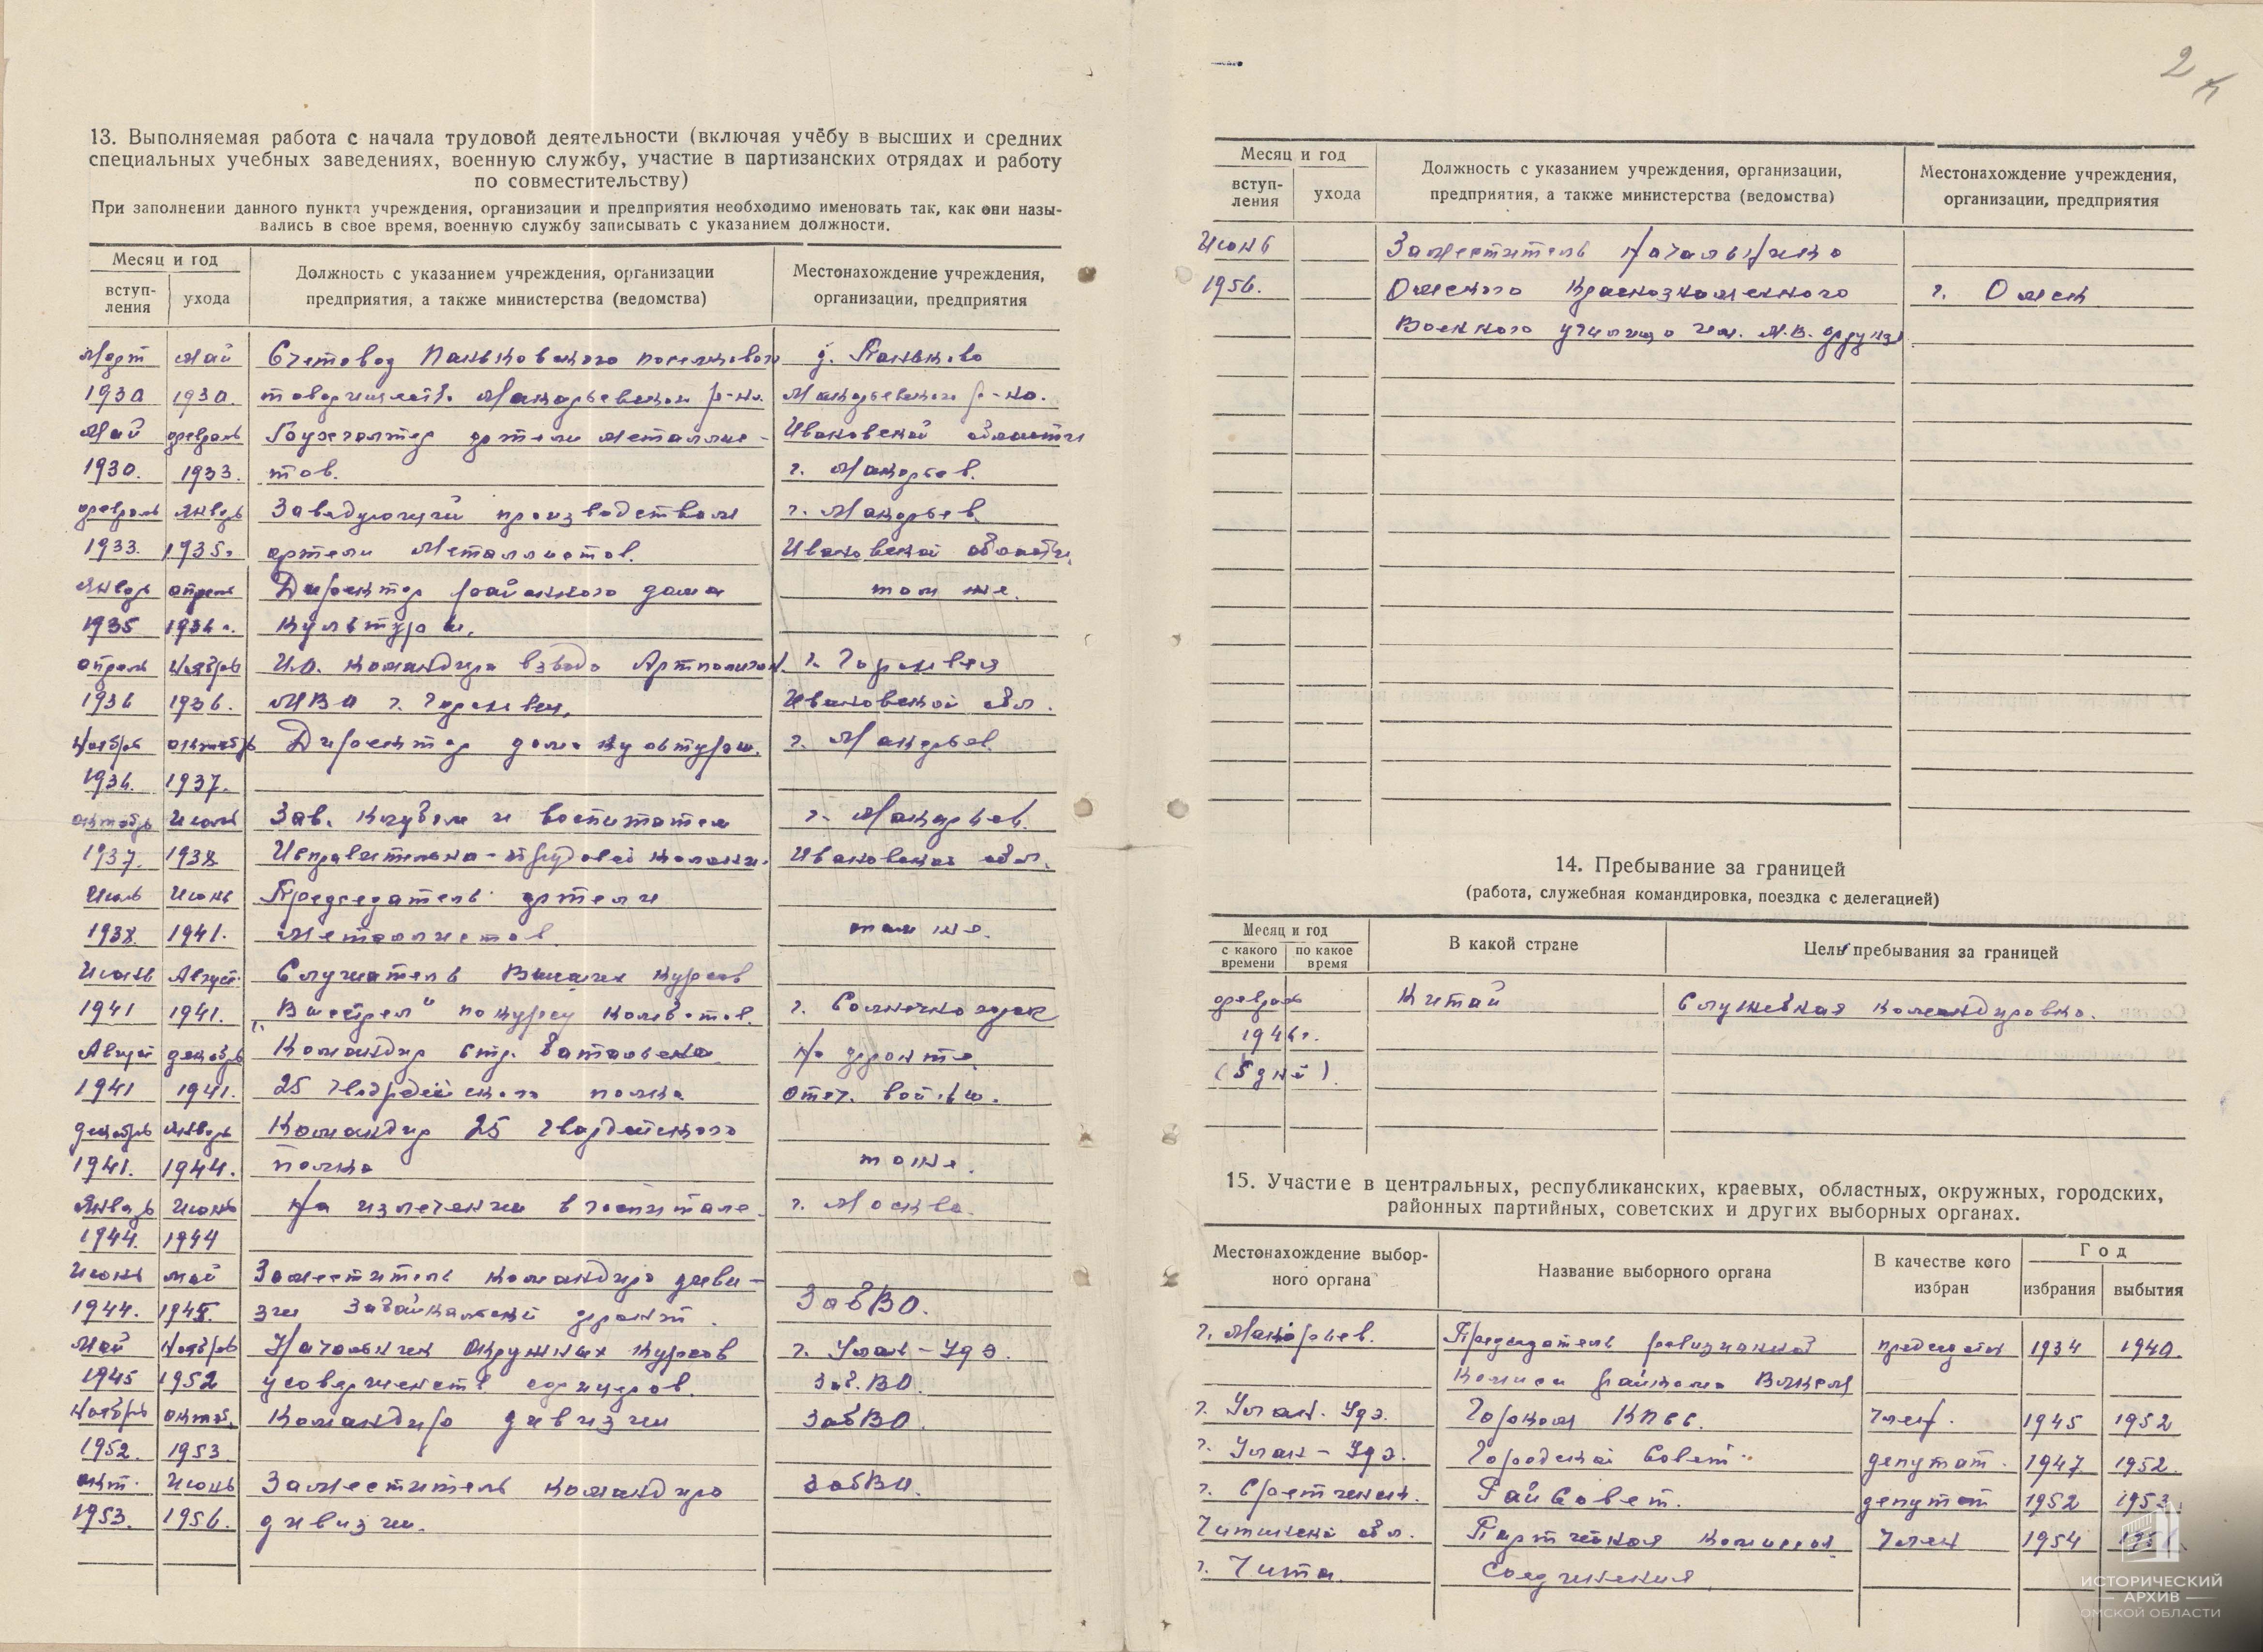 2
13. Выполняемая работа с начала трудовой деятельности (включая учёбу в высших и средних
специальных учебных заведениях, военную службу, участие в партизанских отрядах и работу
по совместительству)
При заполнении данного пункта учреждения, организации и предприятия необходимо именовать так, как они назы-
вались в свое время, военную службу записывать с указанием должности.
Месяц и год
вступ-
ления
ухода
Должность с указанием учреждения, организации
предприятия, а также министерства (ведомства)
Местонахождение учреждения,
организации, предприятия
Март май Счетовод Паньковского поселкового д. Паньково
1930 1930. товариществ. Макарьевского р-на. Макарьевского р-на.
Май февраль Бухгалтер артели металлис- Ивановской области
1930. 1933. тов. г. Макарьев.
февраль январь Заведующий производством г. Макарьев.
1933. 1935г артели Металлистов. Ивановской области.
Январь апрель Директор районного дома там же.
1935 1936г. культуры.
апрель ноябрь И.О. командира взвода Артполигон г. Гороховец
1936 1936. МВО г. Гороховец. Ивановской обл.
Ноябрь октябрь Директор дома культуры. г. Макарьев.
1936. 1937.
октябрь Июль Зав. клубом и воспитатель г. Макарьев.
1937. 1938. Исправительно-трудовой колони. Ивановской обл.
Июль Июнь Председатель артели
1938. 1941. металлистов. там же.
Июнь Август. Слушатель Высших курсов
1941 1941. „Выстрел" по курсу комбатов. г. Солнечногорск
Август декабрь Командир стр. батальона На фронте
1941 1941. 25 гвардейского полка отеч. войны.
декабрь январь Командир 25 гвардейского
1941. 1944. полка тоже.
Январь Июнь На излечении в госпитале. г. Москва.
1944. 1944
Июнь май Заместитель командира диви-
1944. 1945. зии Забайкальский фронт. ЗабВО.
Май Ноябрь Начальник Окружных курсов г. Улан-Удэ.
1945 1952 усовершенств офицеров. Заб.ВО.
Ноябрь октяб. Командир дивизии ЗабВО.
1952. 1953.
окт. Июнь Заместитель командира ЗабВО.
1953. 1956. дивизии.
Месяц и год
вступ-
ления
ухода
Должность с указанием учреждения, организации,
предприятия, а также министерства (ведомства)
Местонахождение учреждения,
организации, предприятия
Июнь Заместитель Начальника
1956. Омского Краснознаменного г. Омск
Военного училища им. М.В. Фрунзе
14. Пребывание за границей
(работа, служебная командировка, поездка с делегацией)
Месяц и год
с какого
времени
по какое
время
В какой стране
Цель пребывания за границей
февраль Китай Служебная командировка.
1946г.
(5 дней)
15. Участие в центральных, республиканских, краевых, областных, окружных, городских,
районных партийных, советских и других выборных органах.
Местонахождение выбор-
ного органа
Название выборного органа
В качестве кого
избран
Год
избрания
выбытия
г. Макарьев. Председатель ревизионной председатель 1934 1940.
Комиси райкома ВЛКСМ
г. Улан-Удэ. Горком КПСС. член. 1945 1952
г. Улан-Удэ. Городской Совет. депутат. 1947 1952.
г. Сретенск. РайСовет. депутат 1952 1953.
Читинской обл. Партийная комиссия член 1954
г. Чита. Соединения.
ИСТОРИЧЕСКИЙ
АРХИВ
ОМСКОЙ ОБЛАСТИ